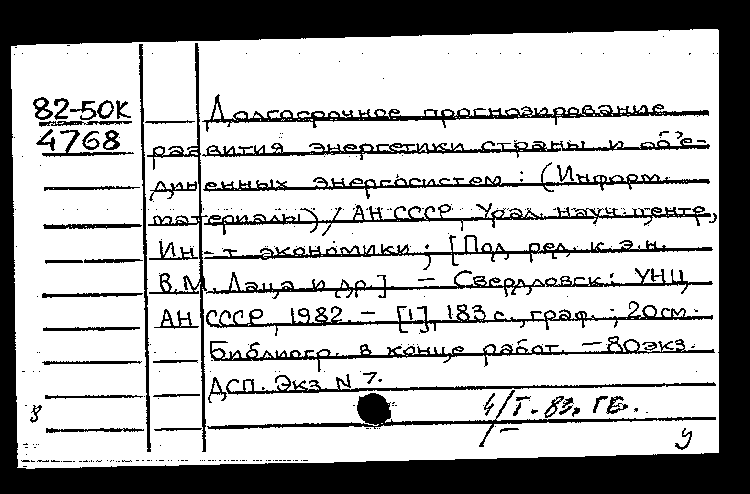 82-50К
4768
Долгосрочное прогнозирование
развития энергетики страны и объе-
диненных энергосистем : (Информ.
материалы) / АН СССР, Урал. науч. центр,
Ин-т экономики ; [Под ред. к.э.н.
В.М. Лаца и др.]. – Свердловск : УНЦ
АН СССР, 1982. – [1], 183 с., граф. ; 20см.
Библиогр. в конце работ. – 80экз.
ДСП. Экз N 7.
4/I-83. ГБ.
У